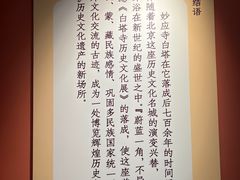 结语
妙应寺白塔在它落成后七百余年的时间
随着北京这座历史文化名城的演变兴替，
浴在新世纪的盛世之中。『蔚蓝一角，不
《白塔寺历史文化展》的落成，使这座
、蒙、藏民族感情、巩固多民族国家统一
文化交流的古迹，成为一处博览辉煌历史
历史文化遗产的新场所。